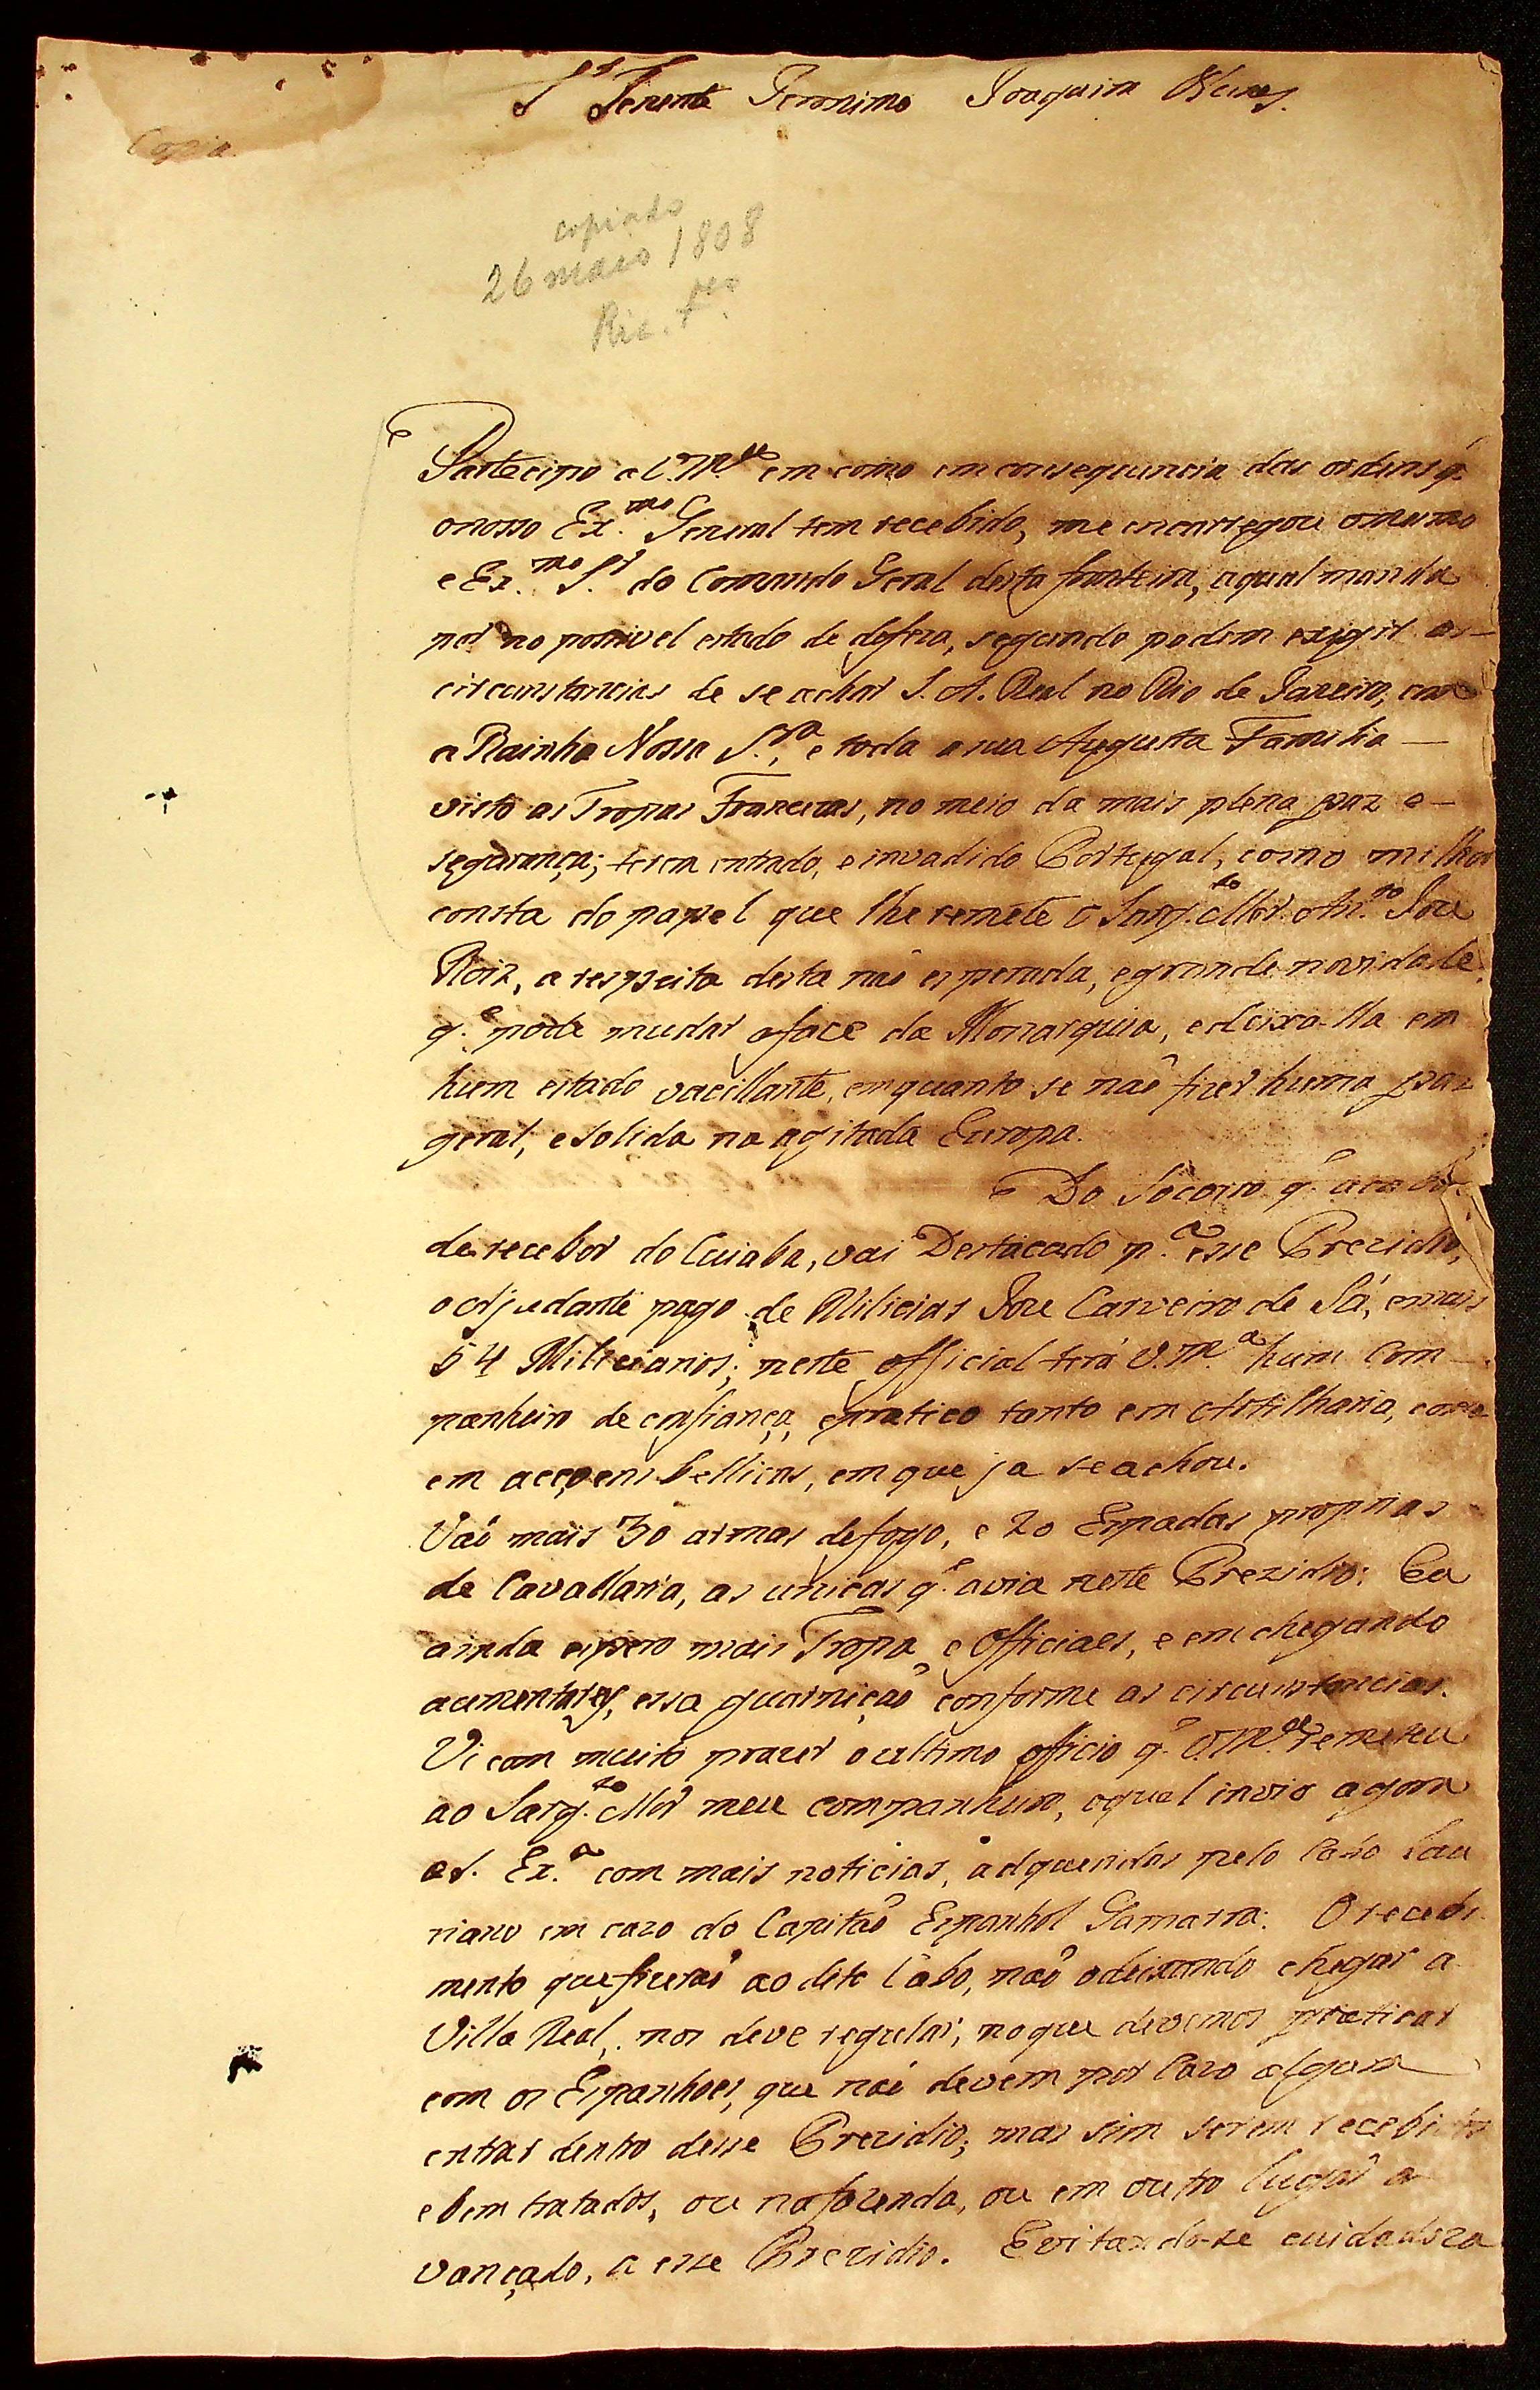 S.r Tenente Jeronimo Joaquim Nunes.
Copia.
copiado
26 maio 1808
Ric. Fco
Partecipo a V. M.ce em como em consequencia das ordens q.
onosso Ex.mo General tem recebido, me encarregou omesmo
e Ex.mo S.r do Comando Geral desta fronteira, aqual manda
por no possivel estado de defeza, segundo podem exigir as
circunstancias de se achar S. A. Real no Rio de Janeiro, com
a Rainha Nossa S.ra, e toda a sua Augusta Familia —
visto as Tropas Francezas, no meio da mais plena paz e —
segurança; terem entrado, e invadido Portugal, como milhor
consta do papel que lhe remete o Sarg.to Mór An.to Joze
Roiz, a respeito desta naõ esperada, egrande novidade
q.e pode mudar aface da Monarquia, edeixa-lla em
hum estado vacillante, emquanto se naõ fizer huma paz
geral, esolida na agitada Europa.
Do Socorro q.e acabo
de receber do Cuiaba, vai Destacado p.a esse Prezidio,
o Ajudante pago de Milicias Joze Carneiro de Sá, emais
54 Milicianos; neste official terá V. M.ce hum Com-
panheiro de confiança, epratico tanto em Artilharia, como
em accoens bellicas, em que ja se achou.
Vaõ mais 30 armas defogo, e 20 Espadas proprias
de Cavallaria, as unicas q.e avia neste Prezidio: Eu
ainda espero mais Tropa, e Officiaes, e em chegando
aumentarey, essa guarniçaõ conforme as circunstancias.
Vi com muito prazer o ultimo officio q.e V. M.ce remeteu
ao Sarg.to Mór meu companheiro, oqual invio agora
a S. Ex.a com mais noticias, adqueridas pelo Cabo Lau
riano em cazo do Capitaõ Espanhol Gamarra: O recebi-
mento que fizeraõ ao dito Cabo, naõ odeixando chegar a
Villa Real, nos deve regular, no que devemos praticar
com os Espanhoes, que naõ devem por Cazo algum
entrar dentro desse Prezidio; mas sim serem recebidos
e bem tratados, ou nafazenda, ou em outro lugar a
vançado, a esse Prezidio. Evitando-se cuidadoza